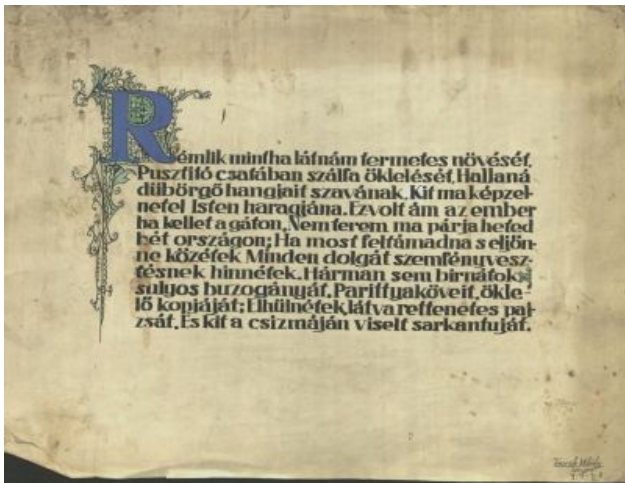 Rémlik mintha látnám termetes növését,
Pusztitó csatában szálfa öklelését, Hallaná
dübörgő hangjait szavának, Kit ma képzel-
netel Isten haragjána. Ez volt ám az ember
ha kellet a gáton, Nem terem ma párja heted
hét országon; Ha most feltámadna s eljön-
ne közétek Minden dolgát szemfényvesz-
tésnek hinnétek. Hárman sem birnátok
sulyos buzogányát, Parittyaköveit, ökle-
lő kopjáját; Elhülnétek, látva rettenetes paj-
zsát, És kit a csizmáján viselt sarkantuját.